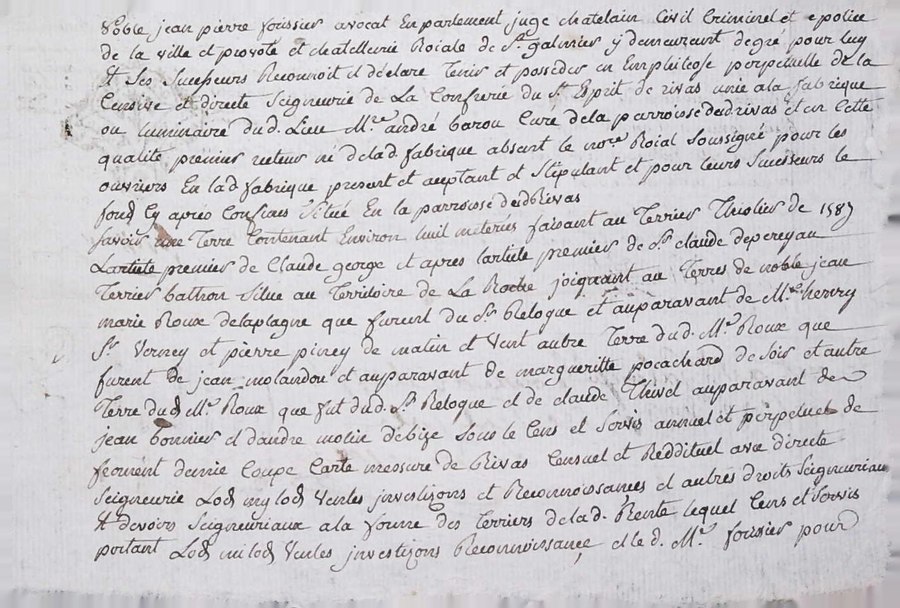 Noble jean pierre foussier avocat En parlement juge chatelain Civil Criminel et epolice
de la ville et prevote et chatellerie Roiale de St. galmier y demeurant de gré pour luy
et ses Successeurs Reconnoit et déclare Tenir et posseder en Emphiteose perpetuelle de la
Censive et directe Seigneurie de La Confrerie du St. Esprit de rivas unie ala fabrique
ou luminaire dud. Lieu Mre. andré barou Cure dela parroisse dud. rivas et en Cette
qualité premier recteur né delad fabrique absent le nore. Roial Soussigné pour les
ouvriers En lad fabrique present et aceptant et Stipulant et pour leurs Successeurs le
fond Cy apres Confiné Situé En la parroisse dud Rivas
Savoir une Terre Contenant Environ huit meterées faisant au Terrier Thiolier de 1587
Larticle premier de Claude george et apres larticle premier de Sr. claude depereyau
Terrier bathon Situe au Territoire de La Roche joignant au Terres de noble jean
marie Roux delaplagne que furent du Sr. Relogue et auparavant de Mre. henry
Sr. Verney et pierre piney de matin et Vent autre Terre dud. Mr. Roux que
furent de jean molandon et auparavant de margueritte pocachard de Soir et autre
Terre dud Mr. Roux que fut dud. Sr. Relogue et de claude Thivel auparavant de
jean bonnier et dandre molin de bize Sous le Cens et Servis annuel et perpetuel de
froment demie Coupe Carte mesure de Rivas Censuel et Reddituel avec directe
Seigneurie Lods my lods Ventes investizons et Reconnoissances et autres droits Seigneuriaux
et devoirs Seigneuriaux ala forme des Terriers delad. Rente lequel Cens et Servis
portant Lods mi lods Ventes investizons Reconnoissance et led. Mr. foussier pour